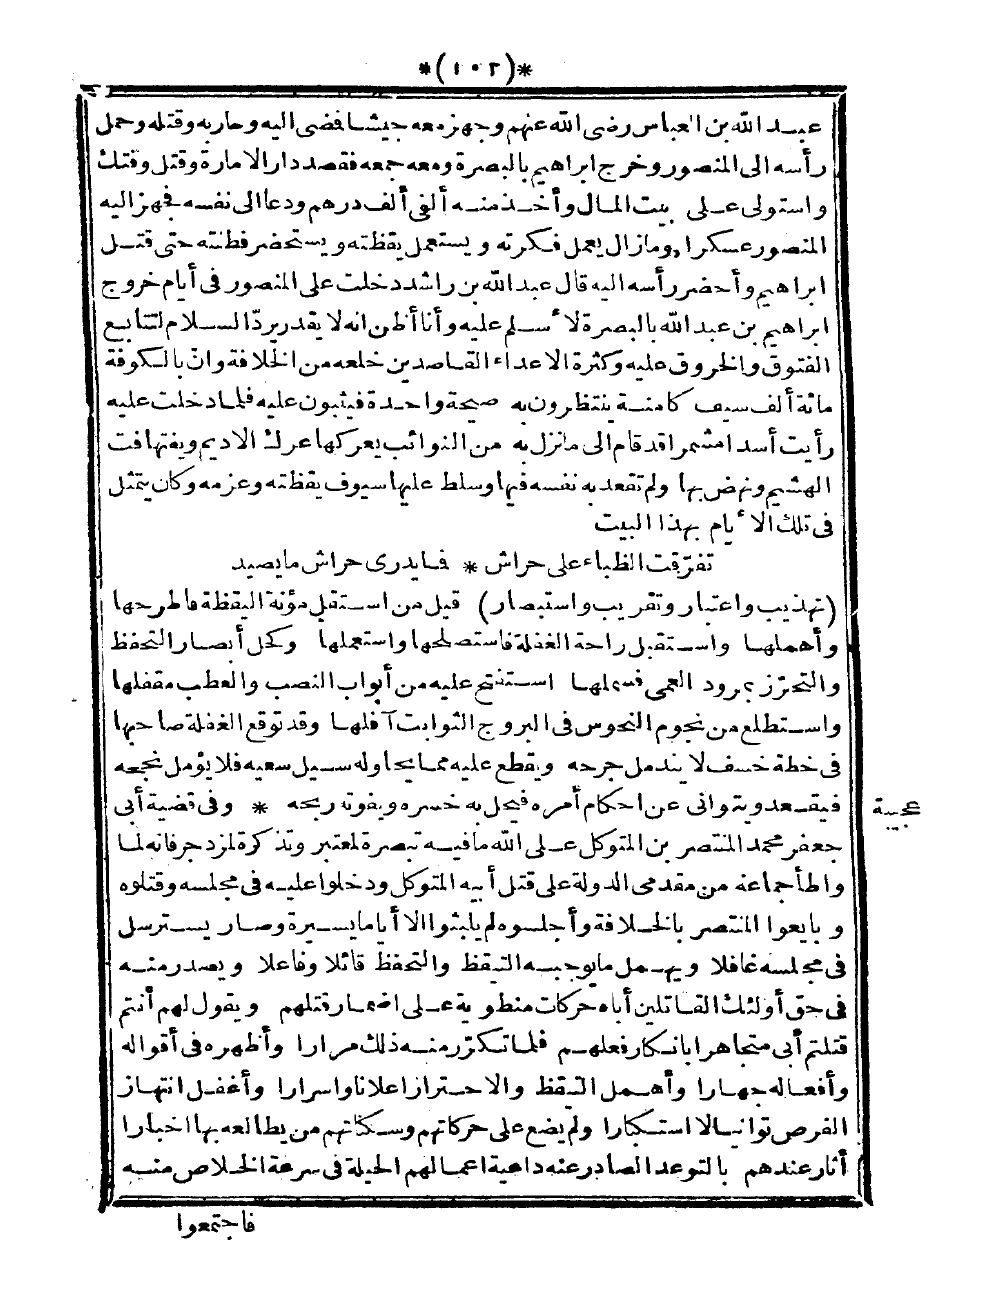 *(١٠٢)*
عبد الله بن العباس رضى الله عنهم وجهز معه جيشا فضى اليه وحاربه وقتله وحمل
رأسه الى المنصور وخرج ابراهيم بالبصرة ومعه جمعه فقصد دار الامارة وقتل وفتك
واستولى على بيت المال وأخذ منه ألفى ألف درهم ودعا الى نفسه فجهز اليه
المنصور عسكرا ومازال يعمل فكرته ويستعمل يقظته ويستحضر فطنته حتى قتل
ابراهيم وأحضر رأسه اليه قال عبد الله بن راشد دخلت على المنصور فى أيام خروج
ابراهيم بن عبد الله بالبصرة لأسلم عليه وأنا أظن انه لا يقدر يردّ السلام لتتابع
الفتوق والخروق عليه وكثرة الاعداء القاصدين خلعه من الخلافة وانّ بالكوفة
مائة ألف سيف كامنة ينتظرون به صيحة واحدة فيثبون عليه فلما دخلت عليه
رأيت أسدا مشمرا قد قام الى مانزل به من النوائب يعركها عرك الاديم ويفتها فت
الهشيم ونهض بها ولم تقعد به نفسه فيها وسلط عليها سيوف يقظته وعزمه وكان يتمثل
فى تلك الأيام بهذا البيت
تفرّقت الظباء على حراش * فمايدرى حراش مايصيد
(تهذيب واعتبار وتقريب واستبصار) قيل من استقل مؤنة اليقظة فاطرحها
وأهملها واستقبل راحة الغفلة فاستصلحها واستعملها وكحل أبصار التحفظ
والتحرّز بمرود العمى فسملها استفتح عليه من أبواب النصب والعطب مقفلها
واستطلع من نجوم النحوس فى البروج الثوابت آفلها وقد توقع الغفلة صاحبها
فى خطة خسف لا يندمل جرحه ويقطع عليه مما يحاوله سبيل سعيه فلا يؤمل نجحه
فيقعد ويتوانى عن احكام أمره فيحل به خسره ويفوته ربحه * وفى قضية أبى
عجيبة
جعفر محمد المنتصر بن المتوكل على الله مافيه تبصرة لمعتبر وتذكرة لمزدجر فانه لما
واطأ جماعة من مقدمى الدولة على قتل أبيه المتوكل ودخلوا عليه فى مجلسه وقتلوه
وبايعوا المنتصر بالخلافة وأجلسوه لم يلبثوا الا أياما يسيرة وصار يسترسل
فى مجلسه غافلا ويهمل مايوجبه التيقظ والتحفظ قائلا وفاعلا ويصدر منه
فى حق أولئك القاتلين أباه حركات منطوية على اضمار قتلهم ويقول لهم أنتم
قتلتم أبى متجاهرا بانكار فعلهم فلما تكرّر منه ذلك مرارا وأظهره فى أقواله
وأفعاله جهارا وأهمل التيقظ والاحتراز اعلانا واسرارا وأغفل انتهاز
الفرص توانيا لا استكبارا ولم يضع على حركاتهم وسكناتهم من يطالعه بها اخبارا
أثار عندهم بالتوعد الصادر عنه داعية اعمالهم الحيلة فى سرعة الخلاص منه
فاجتمعوا